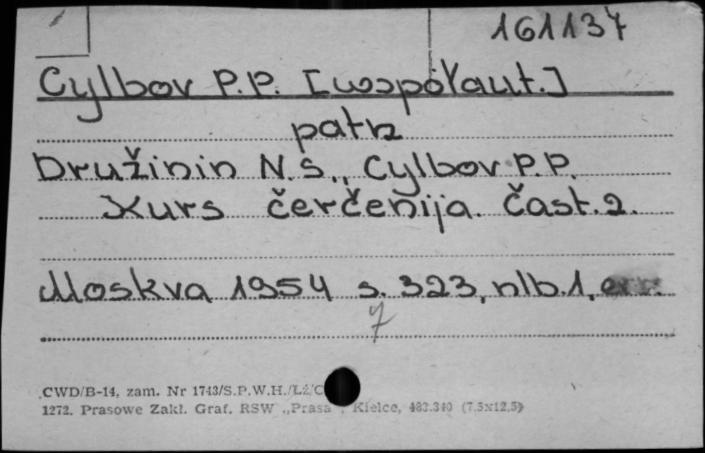 161137
Cylbov P.P. [współaut.]
patrz
Družinin N.S., Cylbov P.P.
Kurs čerčenija. Čast. 2.
Moskva 1954 s. 323, nlb. 1, err.
7
CWD/B-14, zam. Nr 1743/S.P.W.H./Lż/C
1272. Prasowe Zakł. Graf. RSW „Prasa", Kielce, 483.340 (7,5x12,5)